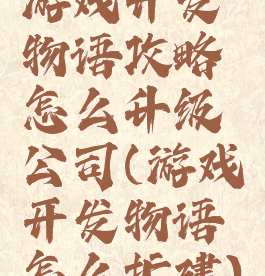 游戏开发
物语攻略
怎么升级
公司(游戏
开发物语
怎么拆建)